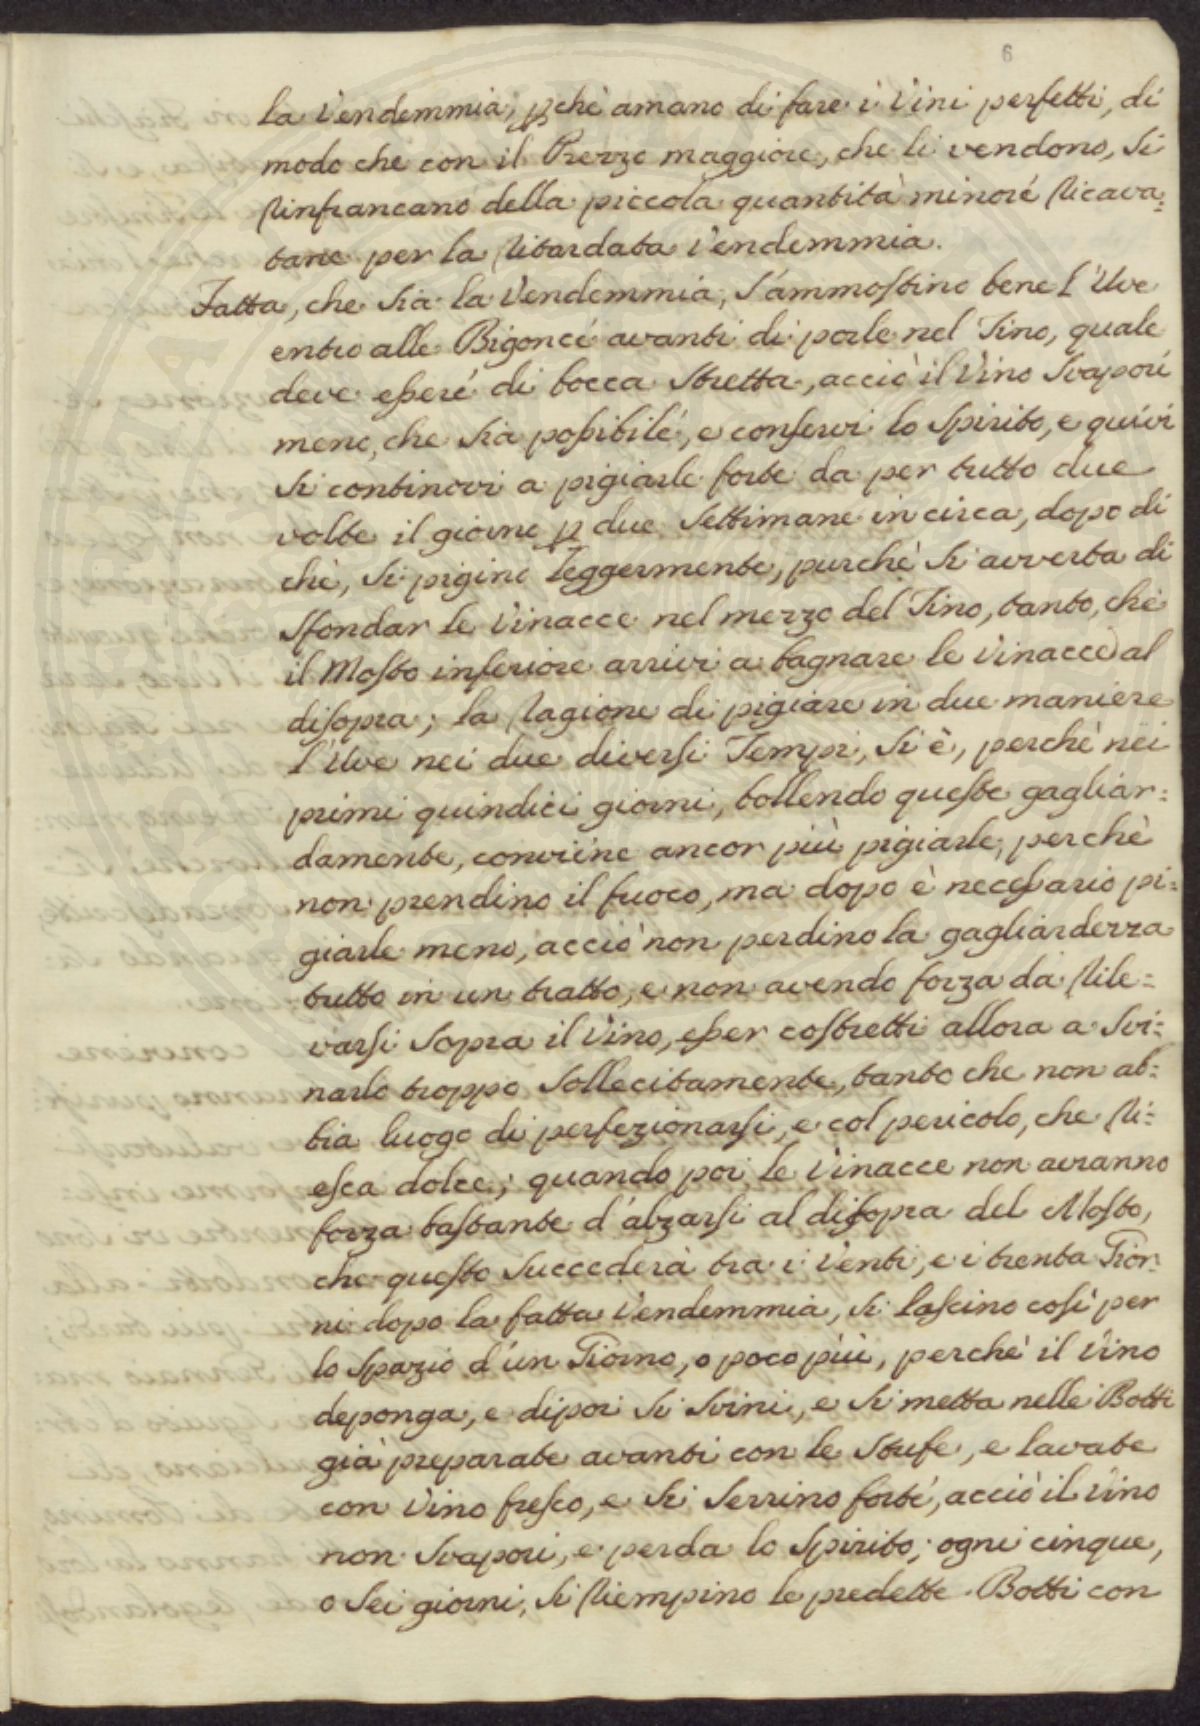 6
la Vendemmia, pchè amano di fare i Vini perfetti, di
modo che con il Prezzo maggiore, che li vendono, si
rinfrancano della piccola quantità minore ricava=
tane per la ritardata Vendemmia.
Fatta, che sia la Vendemmia, s'ammostino bene l'Uve
entro alle Bigonce avanti di porle nel Tino, quale
deve essere di bocca stretta, acciò il Vino svapori
meno, che sia possibile, e conservi lo spirito, e quivi
si continovi a pigiarle forte da per tutto due
volte il giorno p due settimane in circa, dopo di
chè, si pigino leggermente, purchè si avverta di
sfondar le Vinacce nel mezzo del Tino, tanto, che
il Mosto inferiore arrivi a bagnare le Vinacce al
disopra; la ragione di pigiare in due maniere
l'Uve nei due diversi Tempi, si è, perchè nei
primi quindici giorni, bollendo queste gagliar=
damente, conviene ancor più pigiarle, perchè
non prendino il fuoco, ma dopo è necessario pi=
giarle meno, acciò non perdino la gagliardezza
tutto in un tratto, e non avendo forza da rile=
varsi sopra il Vino, esser costretti allora a svi=
narlo troppo sollecitamente, tanto che non ab=
bia luogo di perfezionarsi, e col pericolo, che ri=
esca dolce; quando poi le Vinacce non avranno
forza bastante d'alzarsi al disopra del Mosto,
che questo succederà tra i Venti, e i trenta Gior=
ni dopo la fatta Vendemmia, si lascino così per
lo spazio d'un Giorno, o poco più, perchè il Vino
deponga, e dipoi si svini, e si metta nelle Botti
già preparate avanti con le stufe, e lavate
con Vino fresco, e si serrino forte, acciò il Vino
non svapori, e perda lo spirito; ogni cinque,
o sei giorni, si riempino le predette Botti con